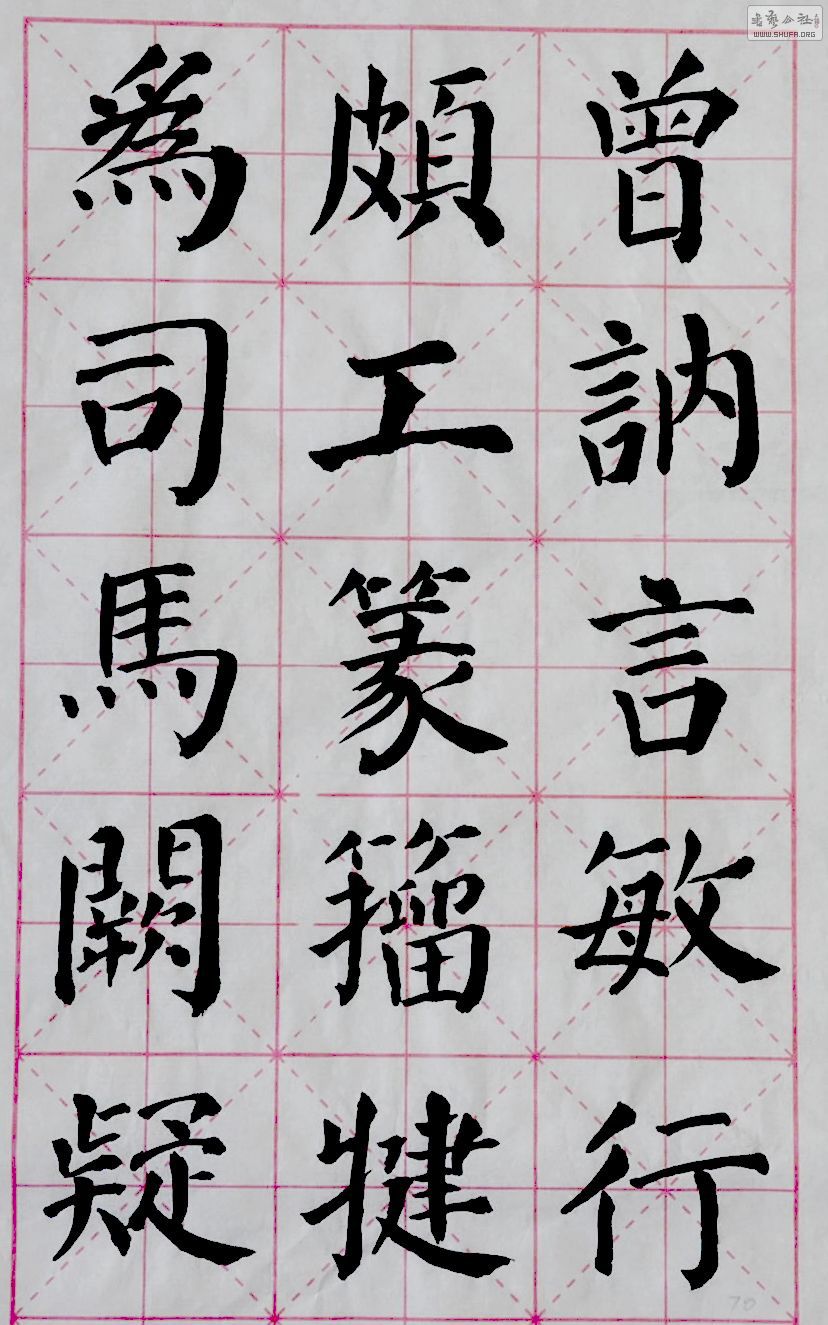 曾訥言敏行
頗工篆籀犍
為司馬闕疑
書藝公社
WWW.SHUFA.ORG
70